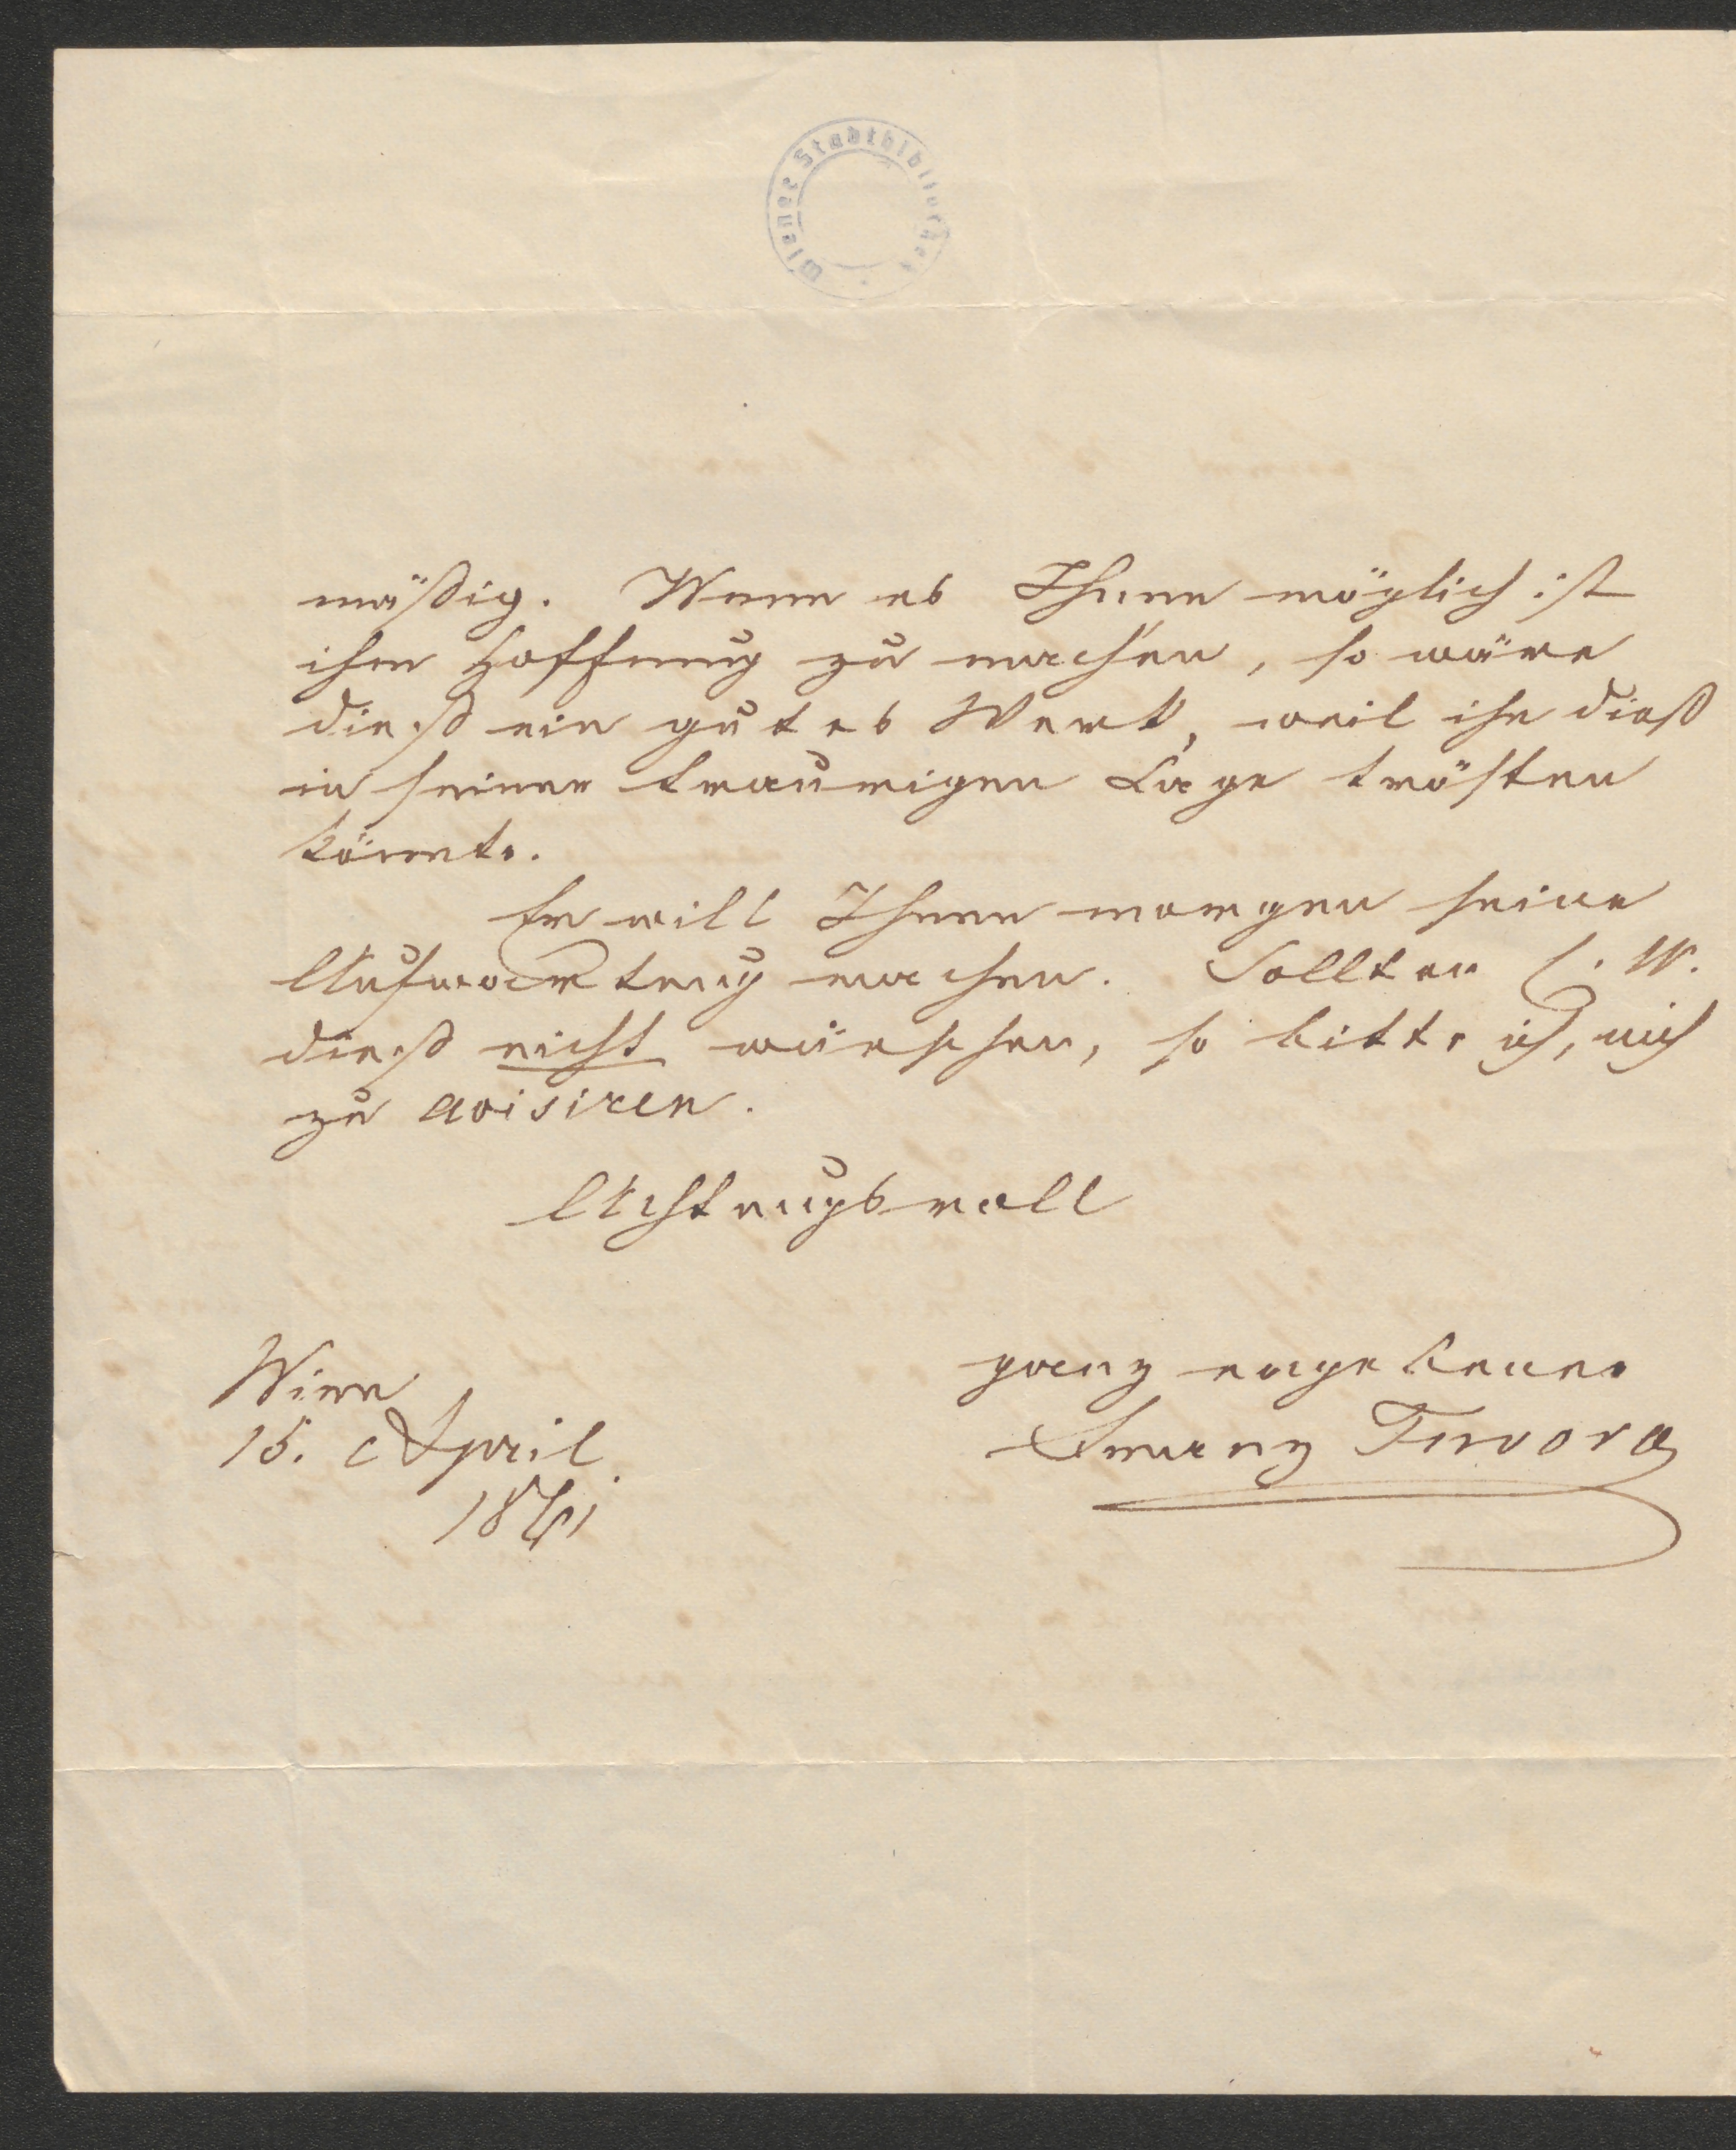 Wiener Stadtbibliothek
mäßig. Wenn es Ihnen möglich ist
ihm Hoffnung zu machen, so wäre
dieß ein gutes Werk, weil ihn dieß
in seiner traurigen Lage trösten
könnte.
Er will Ihnen morgen seine
Aufwartung machen. Sollten E. W.
dieß nicht wünschen, so bitte ich, mich
zu avisiren.
Achtungsvoll
ganz ergebener
Wien
15. April
1841
Franz Tuvora